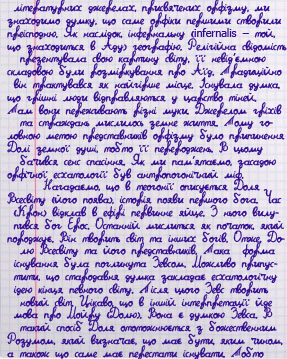 літературних джерелах, присвячених орфізму, ми
знаходимо думку, що саме орфіки першими створили
преісподню. Як наслідок інфернальну (infernalis – той,
що знаходиться в Аду) географію. Релігійна свідомість
презентувала свою картину світу, її невід'ємною
складовою були розмірковування про Аїд. Традиційно
він трактувався як найгірше місце. Існувала думка,
що грішні люди відправляються у царство тіней.
Там вони переживають різні муки. Джерелом гріхів
та страждань мислилось земне життя. Тому го-
ловною метою представників орфізму було припинення
Долі земної душі, тобто її перероджень. В цьому
бачився сенс спасіння. Як ми пам'ятаємо, засадою
орфічної есхатології був антропогонічний міф.
Нагадаємо, що в теогонії описується Доля
Всесвіту (його поява), історія появи першого бога. Час
(Крон) відклав в ефірі первинне яйце. З нього вилу-
пився бог Ерос. Останній мислиться як початок, який
породжує. Він творить світ та інших богів. Отже, До-
лю Всесвіту та його представників. Така форма
існування була поглинута Зевсом. Можливо припус-
тити, що стародавня думка закладає есхатологічну
ідею кінця певного світу. Після цього Зевс творить
новий світ. Цікаво, що в іншій інтерпретації йде
мова про Мойру (Долю). Вона є думкою Зевса. В
такий спосіб Доля ототожнюється з божественним
Розумом, який визначає, що має бути, яким чином,
а також що саме має перестати існувати. Тобто